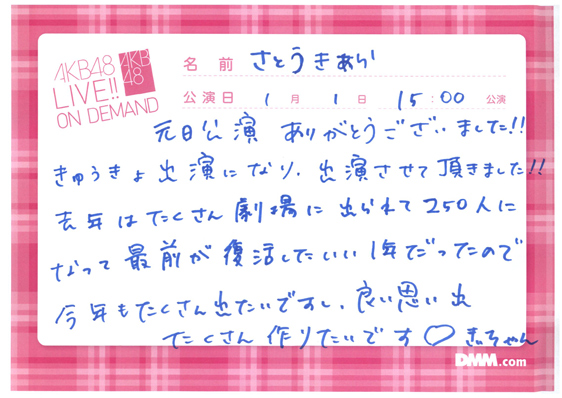 AKB48
LIVE!!
ON DEMAND
AKB
48
名前 さとうきあら
公演日 1月1日 15:00 公演
元旦公演 ありがとうございました!!
きゅうきょ出演になり、出演させて頂きました!!
去年はたくさん劇場に出られて250人に
なって最前が復活したいい1年だったので
今年もたくさん出たいですし、良い思い出
たくさん作りたいです♡ きぃちゃん
DMM.com